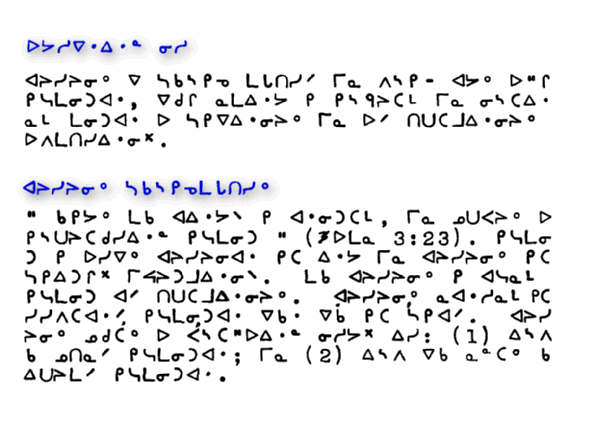 ᐅᔭᓯᐁᐧᐃᐧᐣ ᓂᓯ
ᐊᔨᓯᔨᓂᐤ ᐁ ᓴᑲᓴᑭᓄ ᒪᒪᑎᓯᐟ ᒥᓇ ᐱᓴᑭ - ᐊᔭᐤ ᐅᐦᒋ
ᑭᓴᒪᓂᑐᐊᐧ, ᐁᑯᒋ ᓇᒪᐃᐧᔭ ᑭ ᑭᓴᑫᔨᑕᒪ ᒥᓇ ᓂᓴᑕᐃᐧ
ᓇᒪ ᒪᓂᑐᐊᐧ ᐅ ᓴᑭᐁᐃᐧᓂᔨᐤ ᒥᓇ ᐅᐟ ᑎᑌᑕᒧᐃᐧᓂᔨᐤ
ᐅᐱᒪᑎᓯᐃᐧᓂᕽ.
ᐊᔨᓯᔨᓂᐤ ᓴᑲᓴᑭᓄᒪᒪᑎᓯᐤ
" ᑲᑭᔭᐤ ᒪᑲ ᐊᐃᐧᔭᐠ ᑭ ᐊᐧᓂᑐᑕᒪ, ᒥᓇ ᓄᑌᐸᔨᐤ ᐅ
ᑭᓴᑌᔨᑕᑯᓯᐃᐧᐣ ᑭᓴᒪᓂᑐ " (ᐅᒪᓇ 3:23). ᑭᓴᒪᓂ
ᑐ ᑭ ᐅᓯᐁᐤ ᐊᔨᓯᔨᓂᐊᐧ ᑭᑕ ᐃᐧᔭ ᒥᓇ ᐊᔨᓯᔨᓂᐤ ᑭᑕ
ᓴᑭᐃᑐᒋᕽ ᒥᔪᔨᑐᒧᐃᐧᓂᐠ. ᒪᑲ ᐊᔨᓯᔨᓂᐤ ᑭ ᐊᓴᓇᒪ
ᑭᓴᒪᓂᑐ ᐊᐟ ᑎᑌᑕᒧᐃᐧᓂᔨᐤ. ᐊᔨᓯᔨᓂᐤ ᓇᐊᐧᓯᓇᒪ ᑭᑕ
ᓯᓯᐱᑕᐊᐧᐟ ᑭᓴᒪᓂᑐᐊᐧ ᐁᑲᐧ ᐁᑲ ᑭᑕ ᓴᑭᐊᐧᐟ. ᐊᔨᓯ
ᔨᓂᐤ ᓄᑯᑕᐤ ᐅ ᐹᓴᑕᐦᐅᐃᐧᐣ ᓂᓯᔭᕽ ᐃᓯ: (1) ᐃᓴᐱ
ᑲ ᓄᑎᓇᐟ ᑭᓴᒪᓂᑐᐊᐧ; ᒥᓇ (2) ᐃᓴᐱ ᐁᑲ ᓇᓐᑕᐤ ᑲ
ᐃᑌᔨᒪᐟ ᑭᓴᒪᓂᑐᐊᐧ.